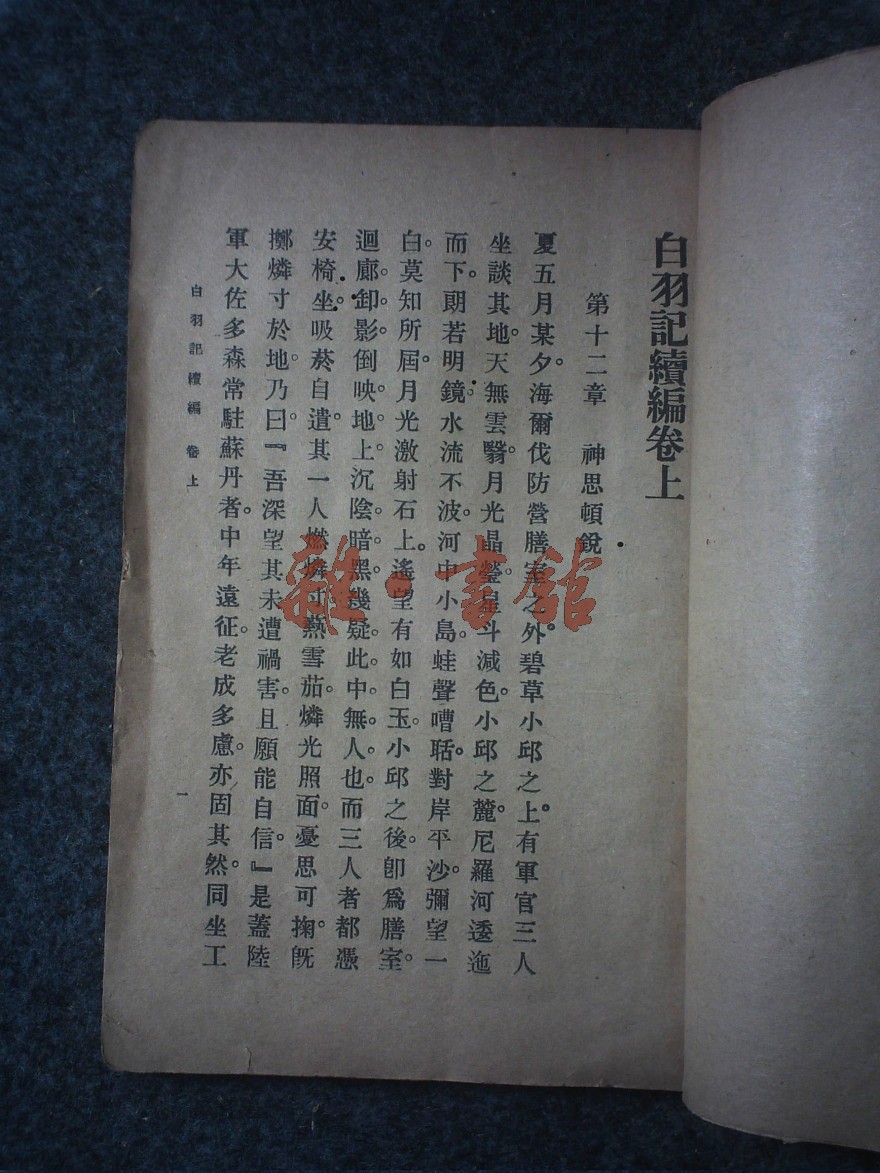 白羽記續編卷上
第十二章　神思頓銳
夏五月某夕。海爾伐防營膳室之外。碧草小邱之上。有軍官三人
坐談其地。天無雲翳。月光晶瑩。星斗減色。小邱之麓。尼羅河逶迤
而下。朗若明鏡。水流不波。河中小島。蛙聲嘈聒。對岸平沙。彌望一
白。莫知所屆。月光激射石上。遙望有如白玉。小邱之後。卽爲膳室。
迴廊。卸影倒映地上。沉陰暗黑。幾疑此中無人也。而三人者都憑
安椅坐。吸菸自遣。其一人燃燐寸爇雪茄。燐光照面。憂思可掬。旣
擲燐寸於地。乃曰。『吾深望其未遭禍害。且願能自信。』是蓋陸
軍大佐多森常駐蘇丹者。中年遠征。老成多慮。亦固其然。同坐工
白羽記續編　卷上
一
雜·書館